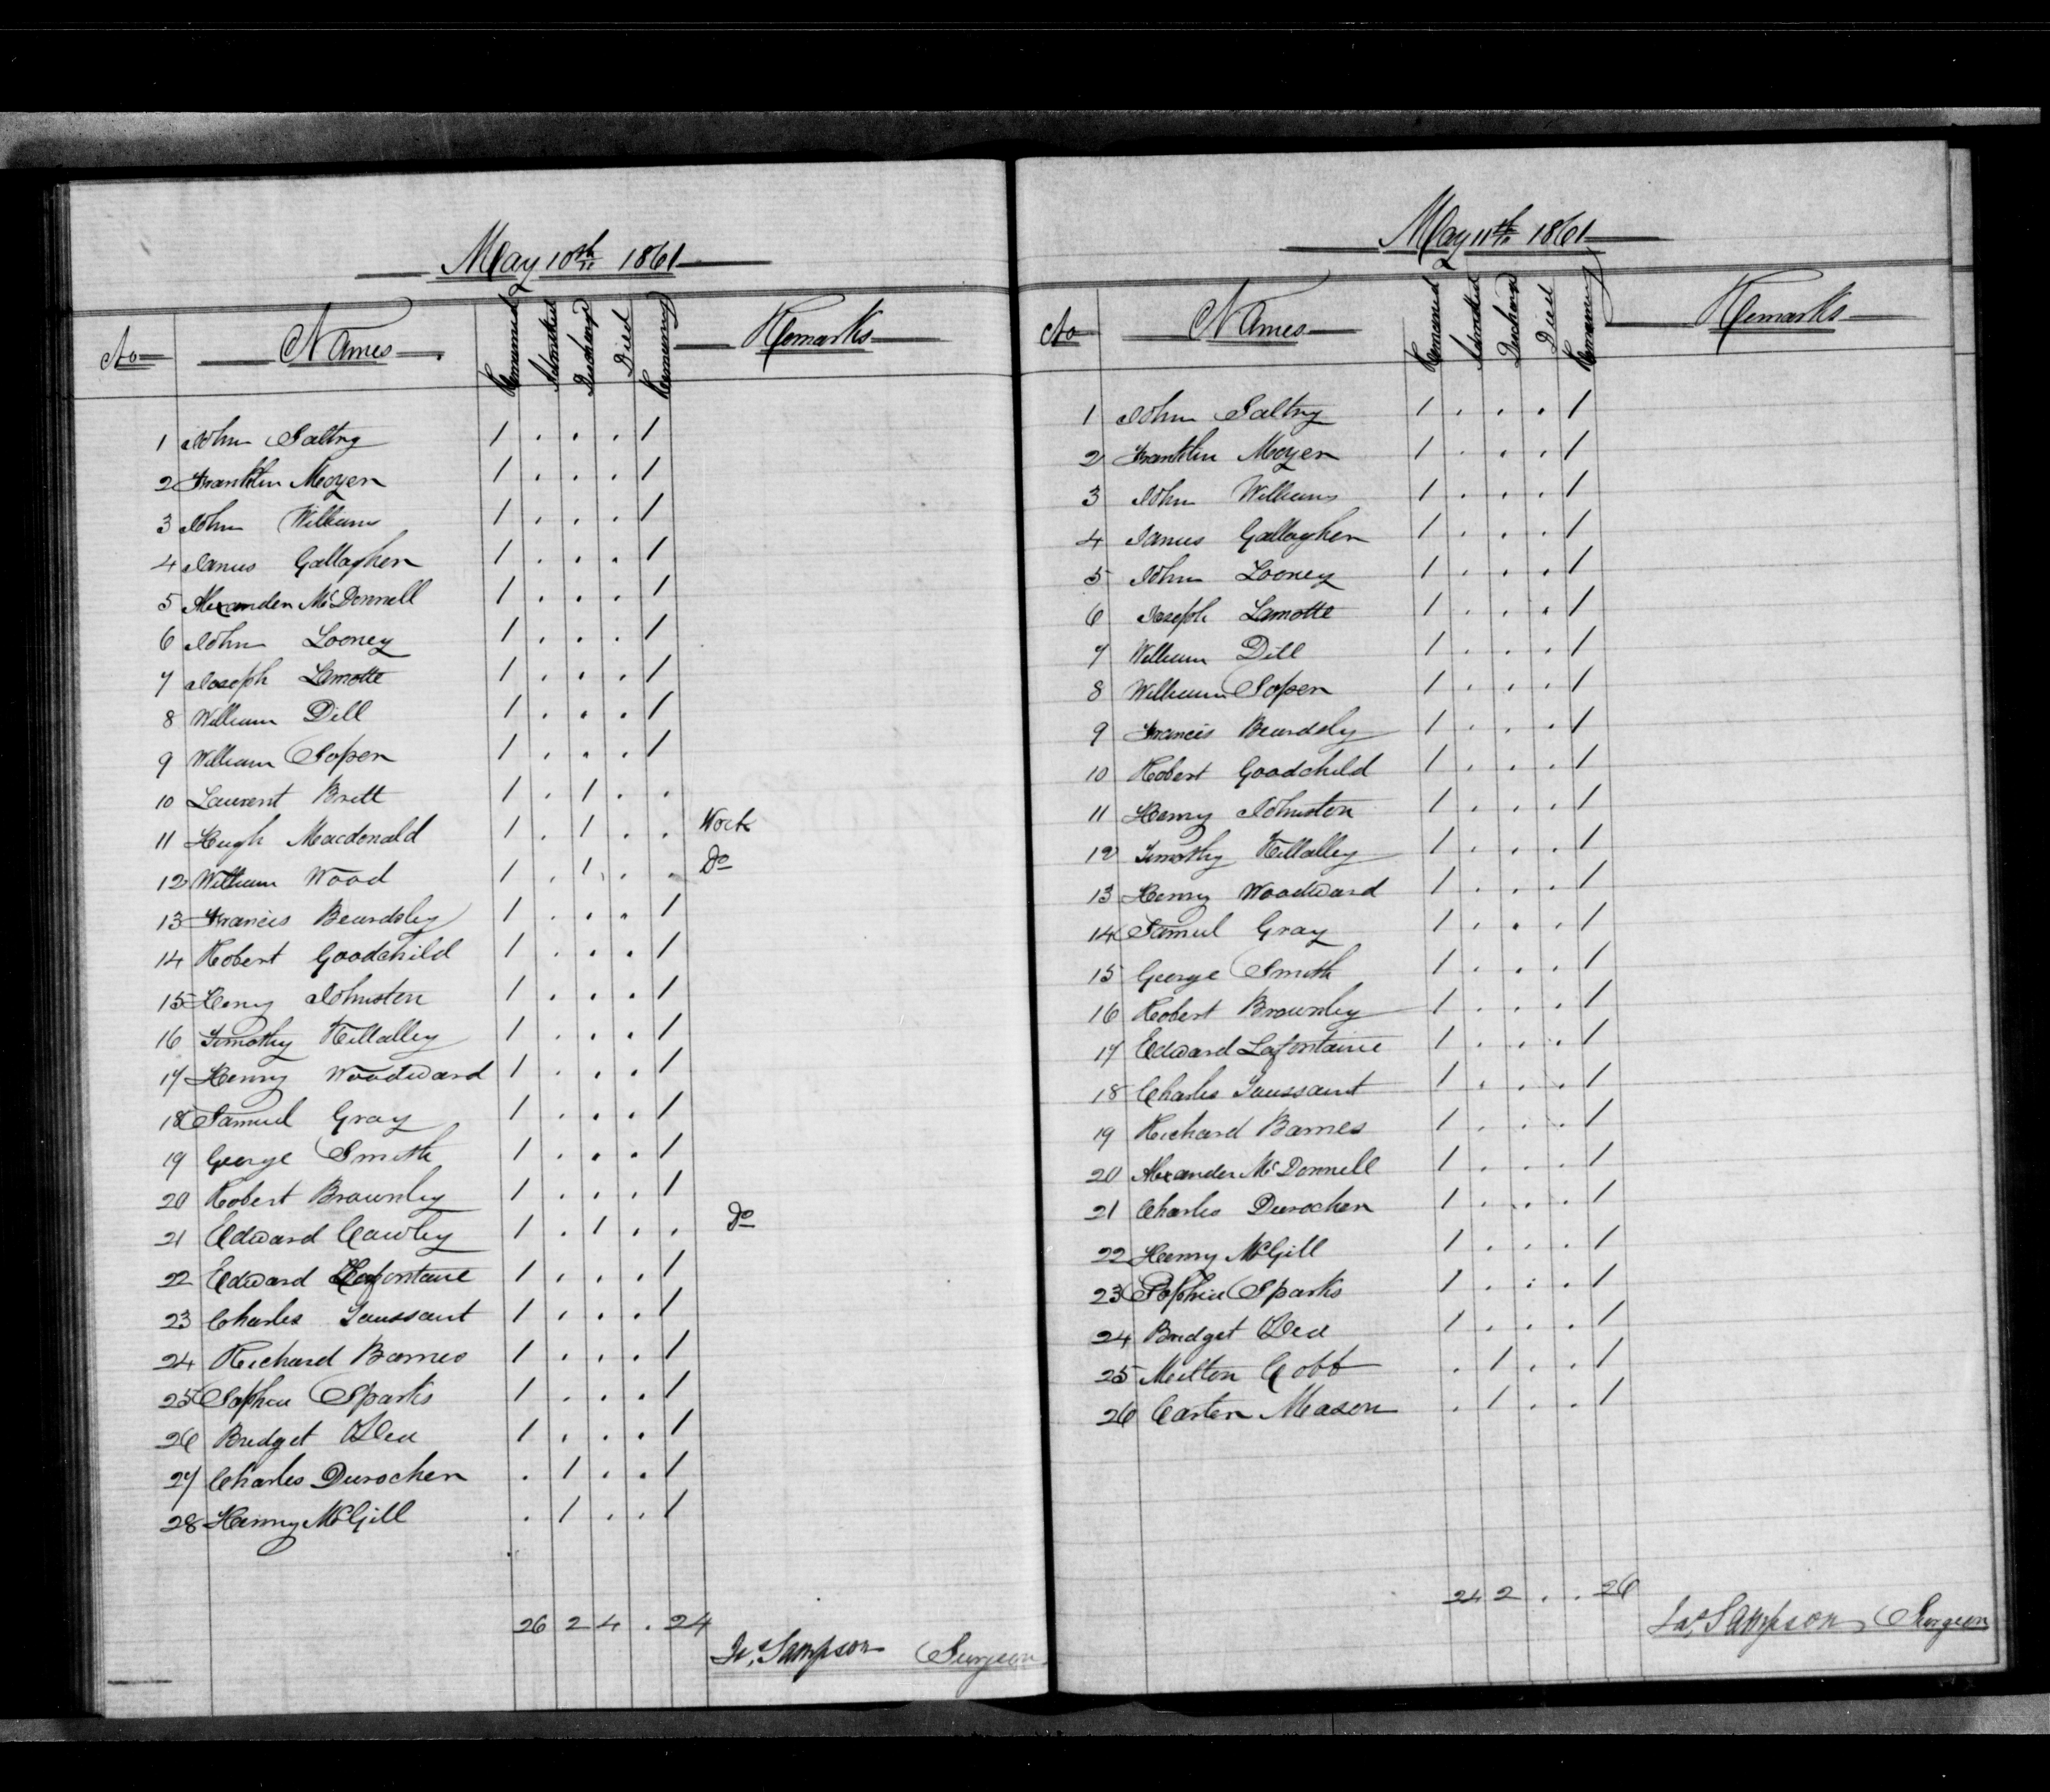 May 10th 1861
No Names Remained Admitted Discharged Died Remaining Remarks
1 John Saltry 1 . . . 1
2 Franklin Moyer 1 . . . 1
3 John Williams 1 . . . 1
4 James Gallagher 1 . . . 1
5 Alexander McDonnell 1 . . . 1
6 John Looney 1 . . . 1
7 Joseph Lamotte 1 . . . 1
8 William Dill 1 . . . 1
9 William Soper 1 . . . 1
10 Laurent Britt 1 . 1 . .
11 Hugh Macdonald 1 . 1 . . Work
12 William Wood 1 . 1 . . Do
13 Francis Beardsley 1 . . . 1
14 Robert Goodchild 1 . . . 1
15 Henry Johnston 1 . . . 1
16 Timothy Killalley 1 . . . 1
17 Henry Woodward 1 . . . 1
18 Samuel Gray 1 . . . 1
19 George Smith 1 . . . 1
20 Robert Brownley 1 . . . 1
21 Edward Cawley 1 . 1 . . Do
22 Edward Lafontaine 1 . . . 1
23 Charles Toussaint 1 . . . 1
24 Richard Barnes 1 . . . 1
25 Sophia Sparks 1 . . . 1
26 Bridget 1 . . . 1
27 Charles Durocher . 1 . . 1
28 Henry McGill . 1 . . 1
26 2 4 . 24
Jas. Sampson Surgeon
May 11th 1861
No Names Remained Admitted Discharged Died Remaining Remarks
1 John Saltry 1 . . . 1
2 Franklin Moyer 1 . . . 1
3 John Williams 1 . . . 1
4 James Gallagher 1 . . . 1
5 John Looney 1 . . . 1
6 Joseph Lamotte 1 . . . 1
7 William Dill 1 . . . 1
8 William Soper 1 . . . 1
9 Francis Beardsly 1 . . . 1
10 Robert Goodchild 1 . . . 1
11 Henry Johnston 1 . . . 1
12 Timothy Killalley 1 . . . 1
13 Henry Woodward 1 . . . 1
14 Samuel Gray 1 . . . 1
15 George Smith 1 . . . 1
16 Robert Brownley 1 . . . 1
17 Edward Lafontaine 1 . . . 1
18 Charles Toussaint 1 . . . 1
19 Richard Barnes 1 . . . 1
20 Alexander McDonnell 1 . . . 1
21 Charles Durocher 1 . . . 1
22 Henry McGill 1 . . . 1
23 Sophia Sparks 1 . . . 1
24 Bridget 1 . . . 1
25 Milton Cobb . 1 . . 1
26 Carter Mason . 1 . . 1
24 2 . . 26
Jas. Sampson Surgeon